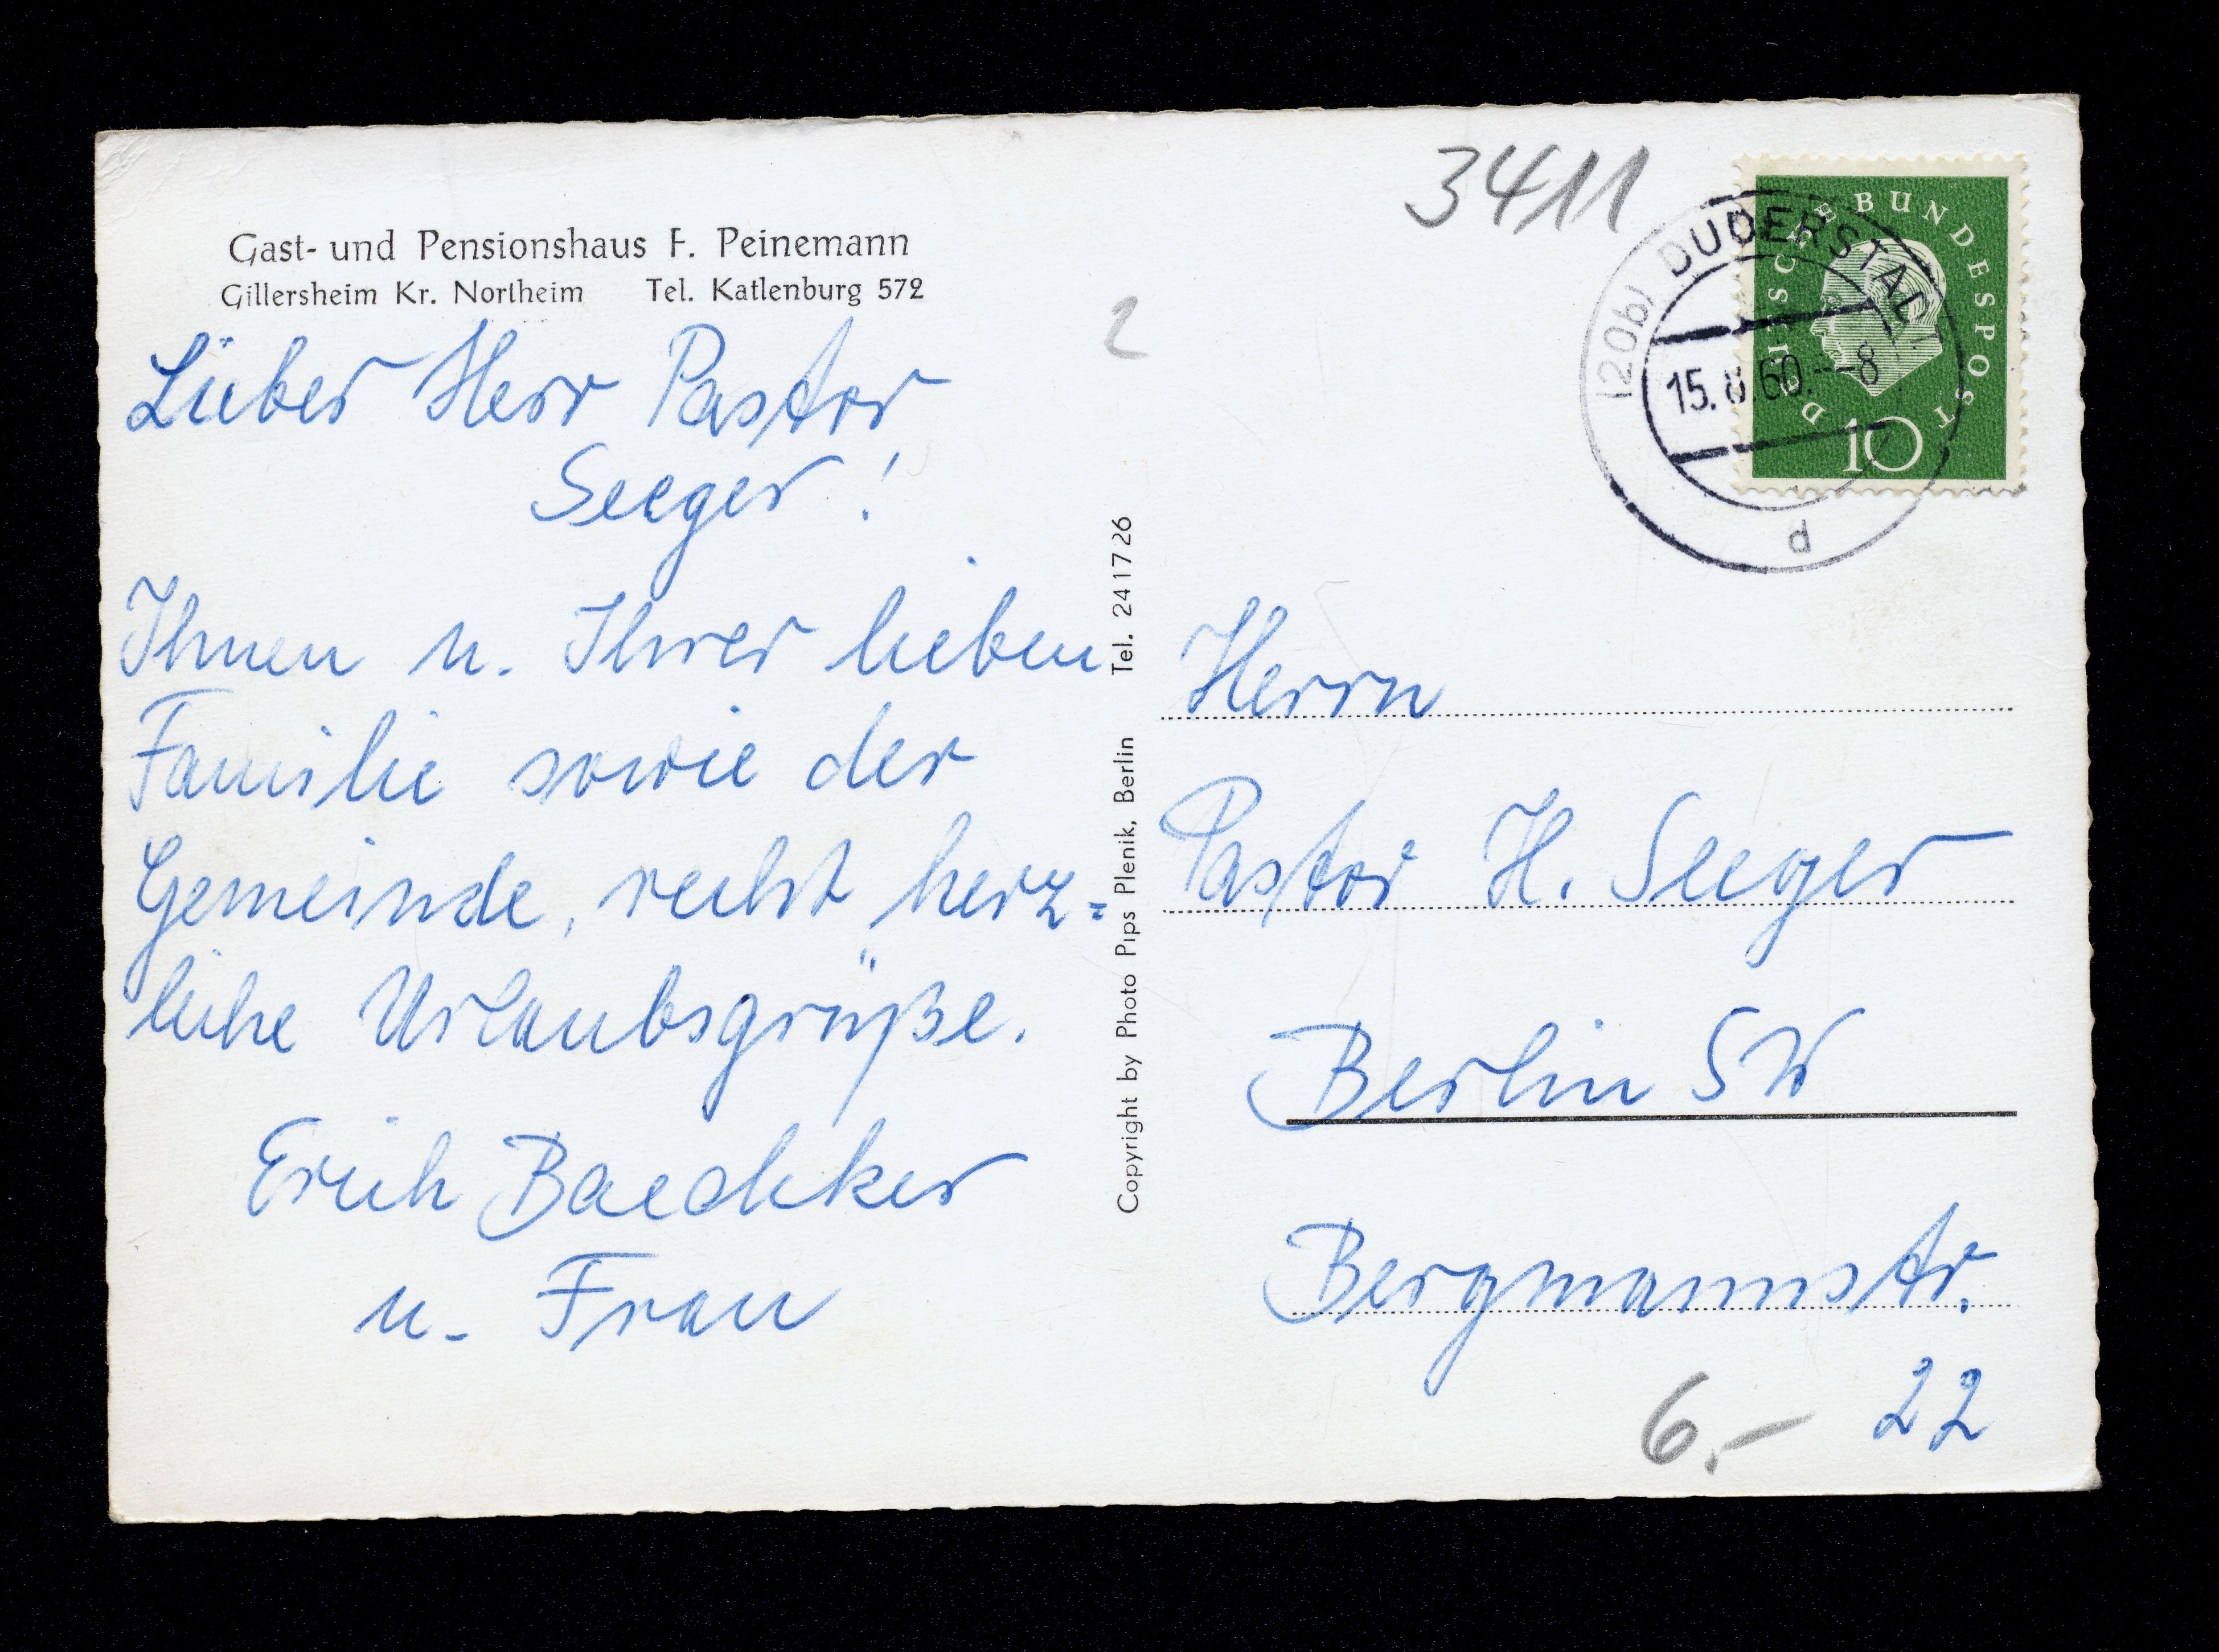 Gast- und Pensionshaus F. Peinemann
Gillersheim Kr. Northeim Tel. Katlenburg 572
Lieber Herr Pastor
Seeger!
Ihnen u. Ihrer lieben
Familie sowie der
Gemeinde, recht herz=
liche Urlaubsgrüße.
Erich Baedeker
u. Frau
2
Copyright by Photo Pips Plenik, Berlin Tel. 24 17 26
3411
DEUTSCHE BUNDESPOST
10
(20b) DUDERSTADT
15.8.60.--8
d
Herrn
Pastor H. Seeger
Berlin SW
Bergmannstr.
22
6.-